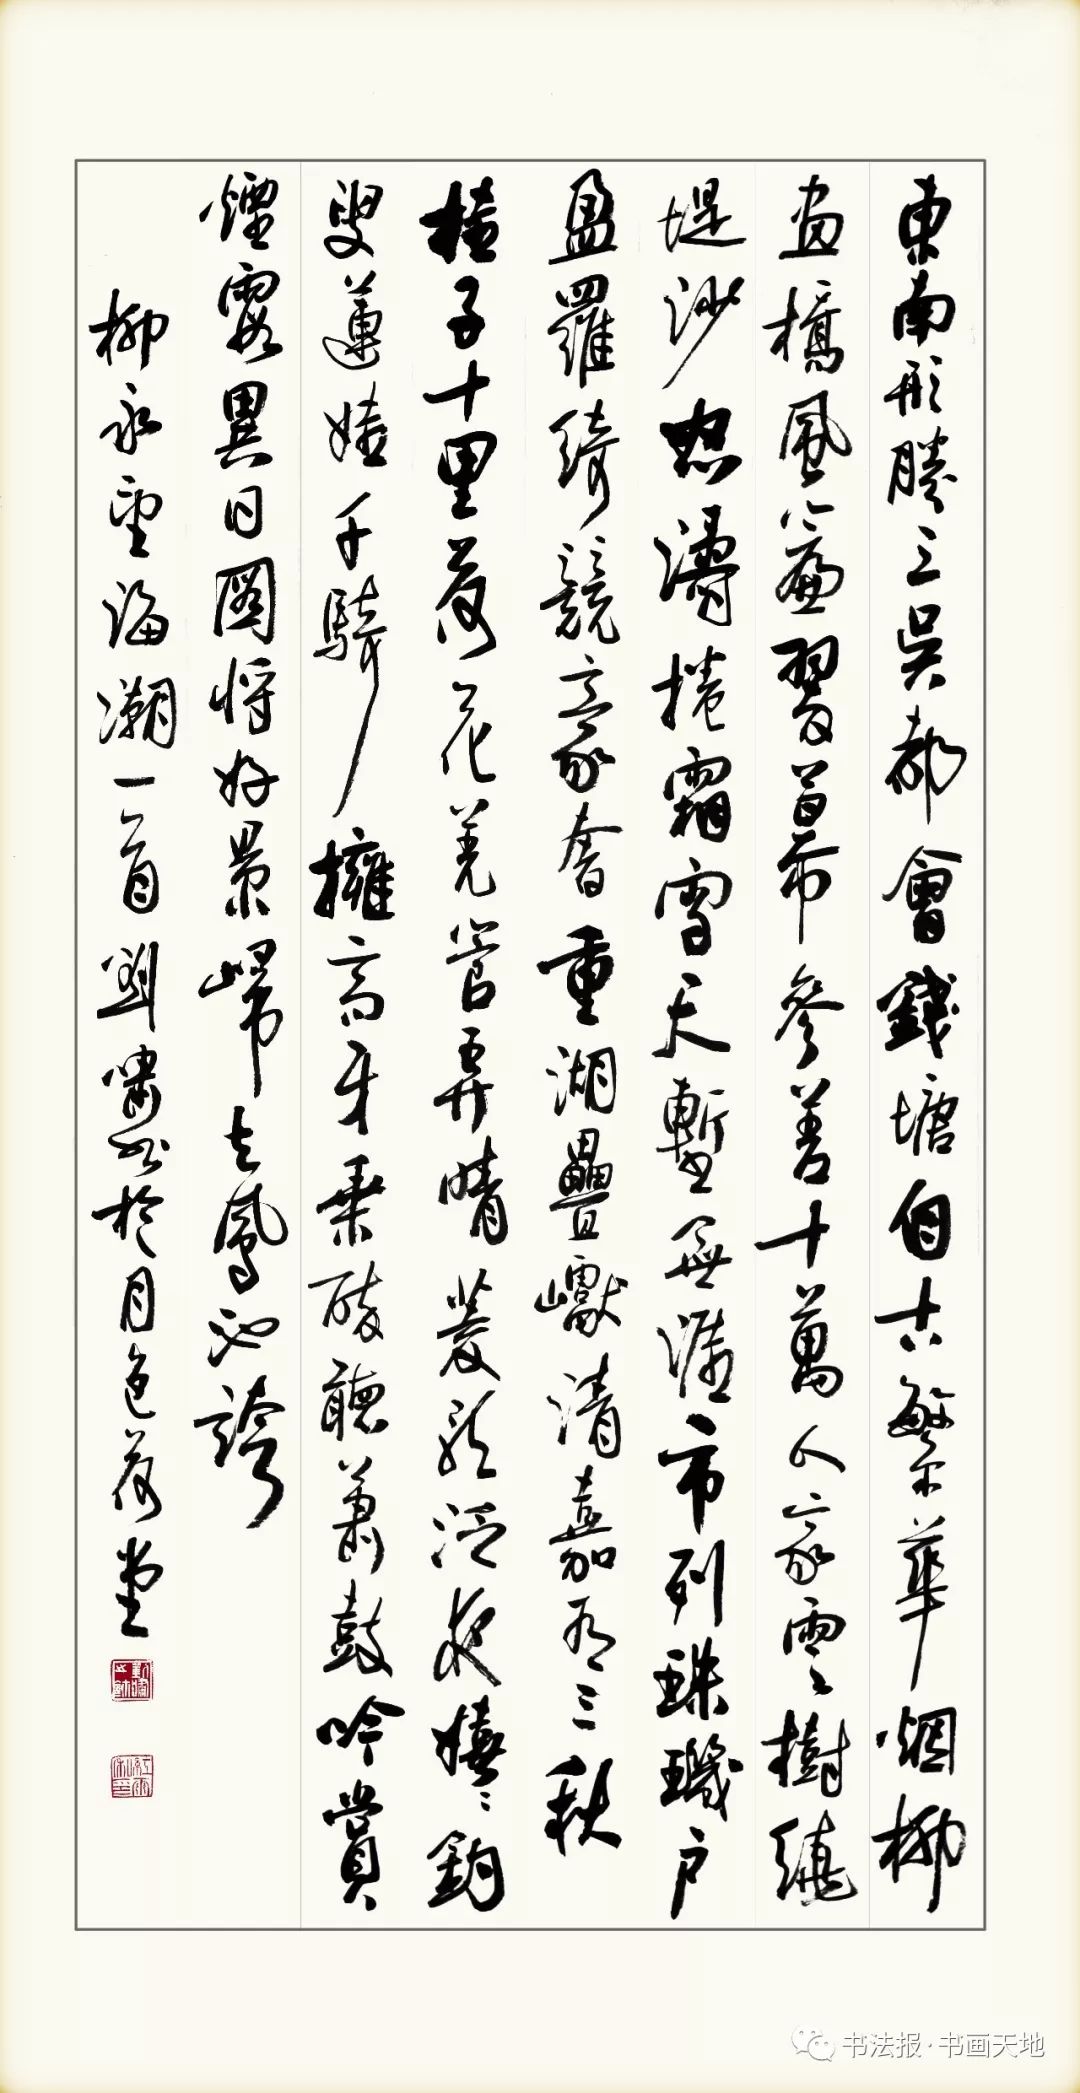 東南形勝三吳都會錢塘自古繁華烟柳
畫橋風簾翠幕參差十萬人家雲樹繞
堤沙怒濤捲霜雪天塹無涯市列珠璣戶
盈羅綺競豪奢重湖疊巘清嘉有三秋
桂子十里荷花羌管弄晴菱歌泛夜嬉〻釣
叟蓮娃千騎擁高牙乘醉聽蕭鼓吟賞
煙霞異日圖將好景歸去鳳池誇
柳永望海潮一首 劉嘯於月色荷堂
书法报·书画天地